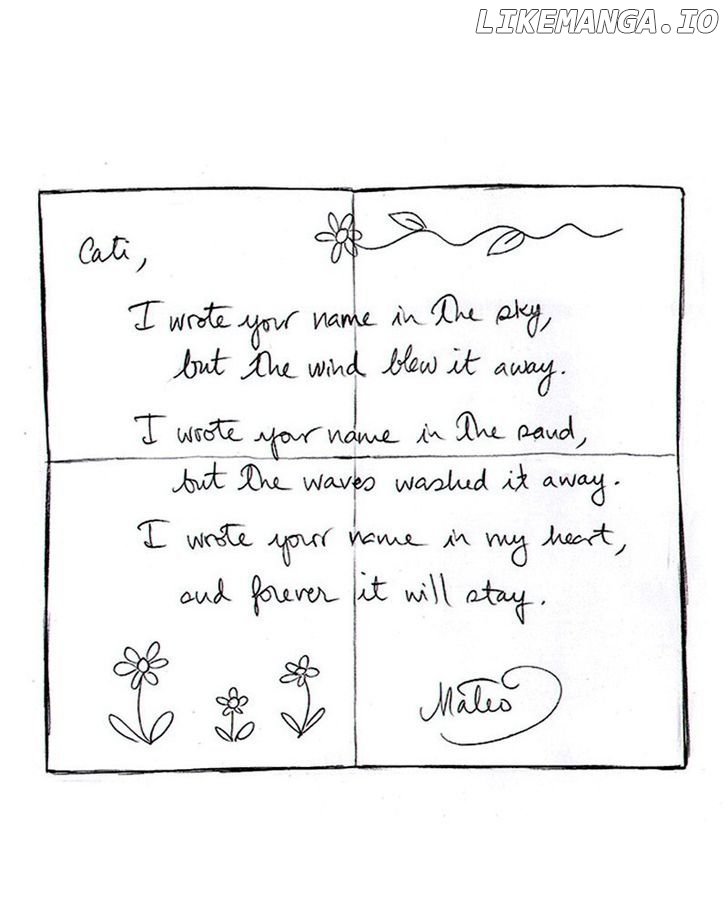 LIKEMANGA.IO
Cati,
I wrote your name in the sky,
but the wind blew it away.
I wrote your name in the sand,
but the waves washed it away.
I wrote your name in my heart,
and forever it will stay.
Mateo